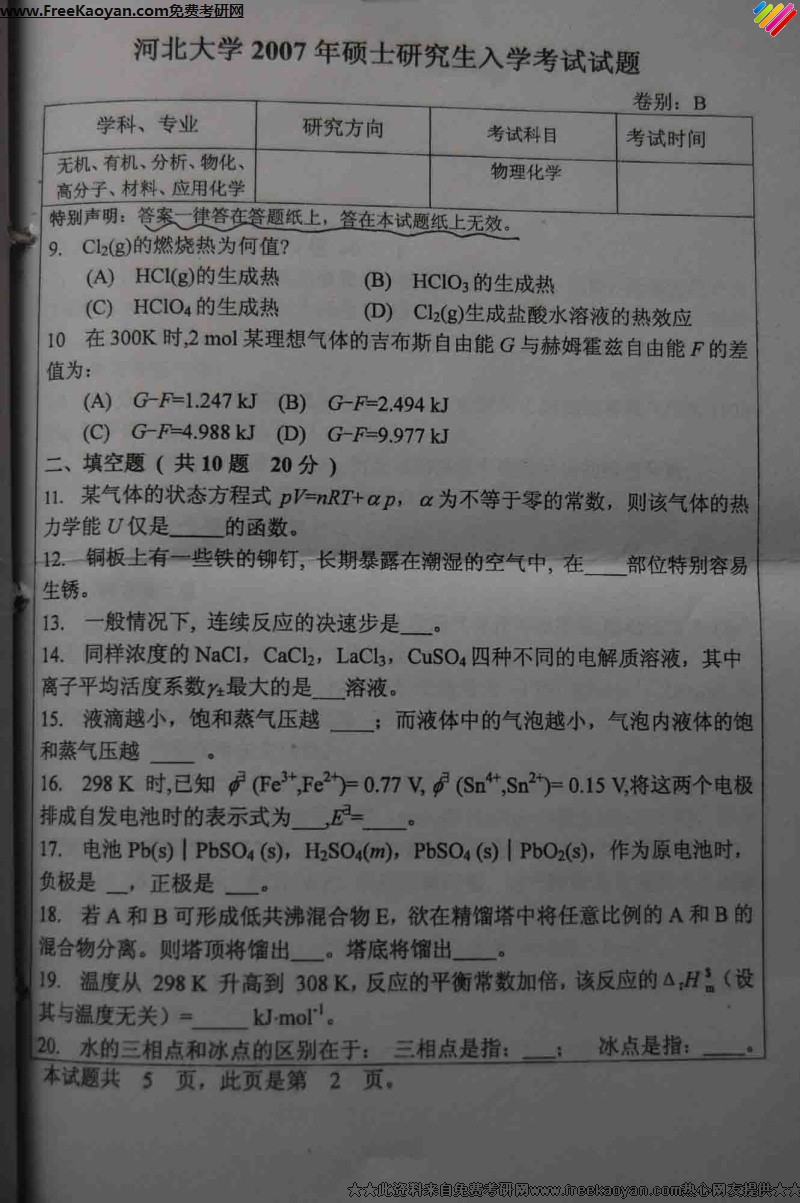 www.FreeKaoyan.com免费考研网
河北大学 2007 年硕士研究生入学考试试题
卷别：B
学科、专业 研究方向 考试科目 考试时间
无机、有机、分析、物化、
高分子、材料、应用化学 物理化学
特别声明：答案一律答在答题纸上，答在本试题纸上无效。
9. Cl₂(g)的燃烧热为何值?
(A) HCl(g)的生成热 (B) HClO₃的生成热
(C) HClO₄的生成热 (D) Cl₂(g)生成盐酸水溶液的热效应
10 在300K时,2 mol 某理想气体的吉布斯自由能 G 与赫姆霍兹自由能 F 的差
值为：
(A) G-F=1.247 kJ (B) G-F=2.494 kJ
(C) G-F=4.988 kJ (D) G-F=9.977 kJ
二、填空题 ( 共10题 20分 )
11. 某气体的状态方程式 pV=nRT+αp，α为不等于零的常数，则该气体的热
力学能 U 仅是_____的函数。
12. 铜板上有一些铁的铆钉, 长期暴露在潮湿的空气中, 在____部位特别容易
生锈。
13. 一般情况下, 连续反应的决速步是___。
14. 同样浓度的 NaCl，CaCl₂，LaCl₃，CuSO₄四种不同的电解质溶液，其中
离子平均活度系数γ±最大的是___溶液。
15. 液滴越小，饱和蒸气压越 ____；而液体中的气泡越小，气泡内液体的饱
和蒸气压越 ____ 。
16. 298 K 时,已知 ϕ∃ (Fe³⁺,Fe²⁺)= 0.77 V, ϕ∃ (Sn⁴⁺,Sn²⁺)= 0.15 V,将这两个电极
排成自发电池时的表示式为___,E∃=____。
17. 电池 Pb(s)｜PbSO₄ (s)，H₂SO₄(m)，PbSO₄ (s)｜PbO₂(s)，作为原电池时，
负极是 __，正极是 ___。
18. 若 A 和 B 可形成低共沸混合物 E，欲在精馏塔中将任意比例的 A 和 B 的
混合物分离。则塔顶将馏出___。塔底将馏出____。
19. 温度从 298 K 升高到 308 K，反应的平衡常数加倍，该反应的ΔᵣH$ₘ（设
其与温度无关）=_____ kJ·mol⁻¹。
20. 水的三相点和冰点的区别在于： 三相点是指：___； 冰点是指：____。
本试题共 5 页，此页是第 2 页。
☆☆此资料来自免费考研网www.freekaoyan.com热心网友提供☆☆